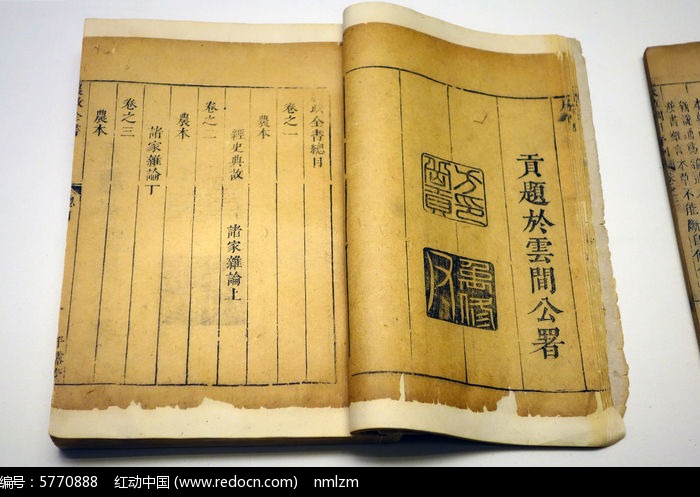 貢題於雲間公署
方印
岳貢
禹修
政全書總目
卷之一
農本
經史典故
諸家雜論上
卷之二
農本
諸家雜論下
卷之三
農本
农编号：5770888 红动中国 (www.redocn.com) nmlzm